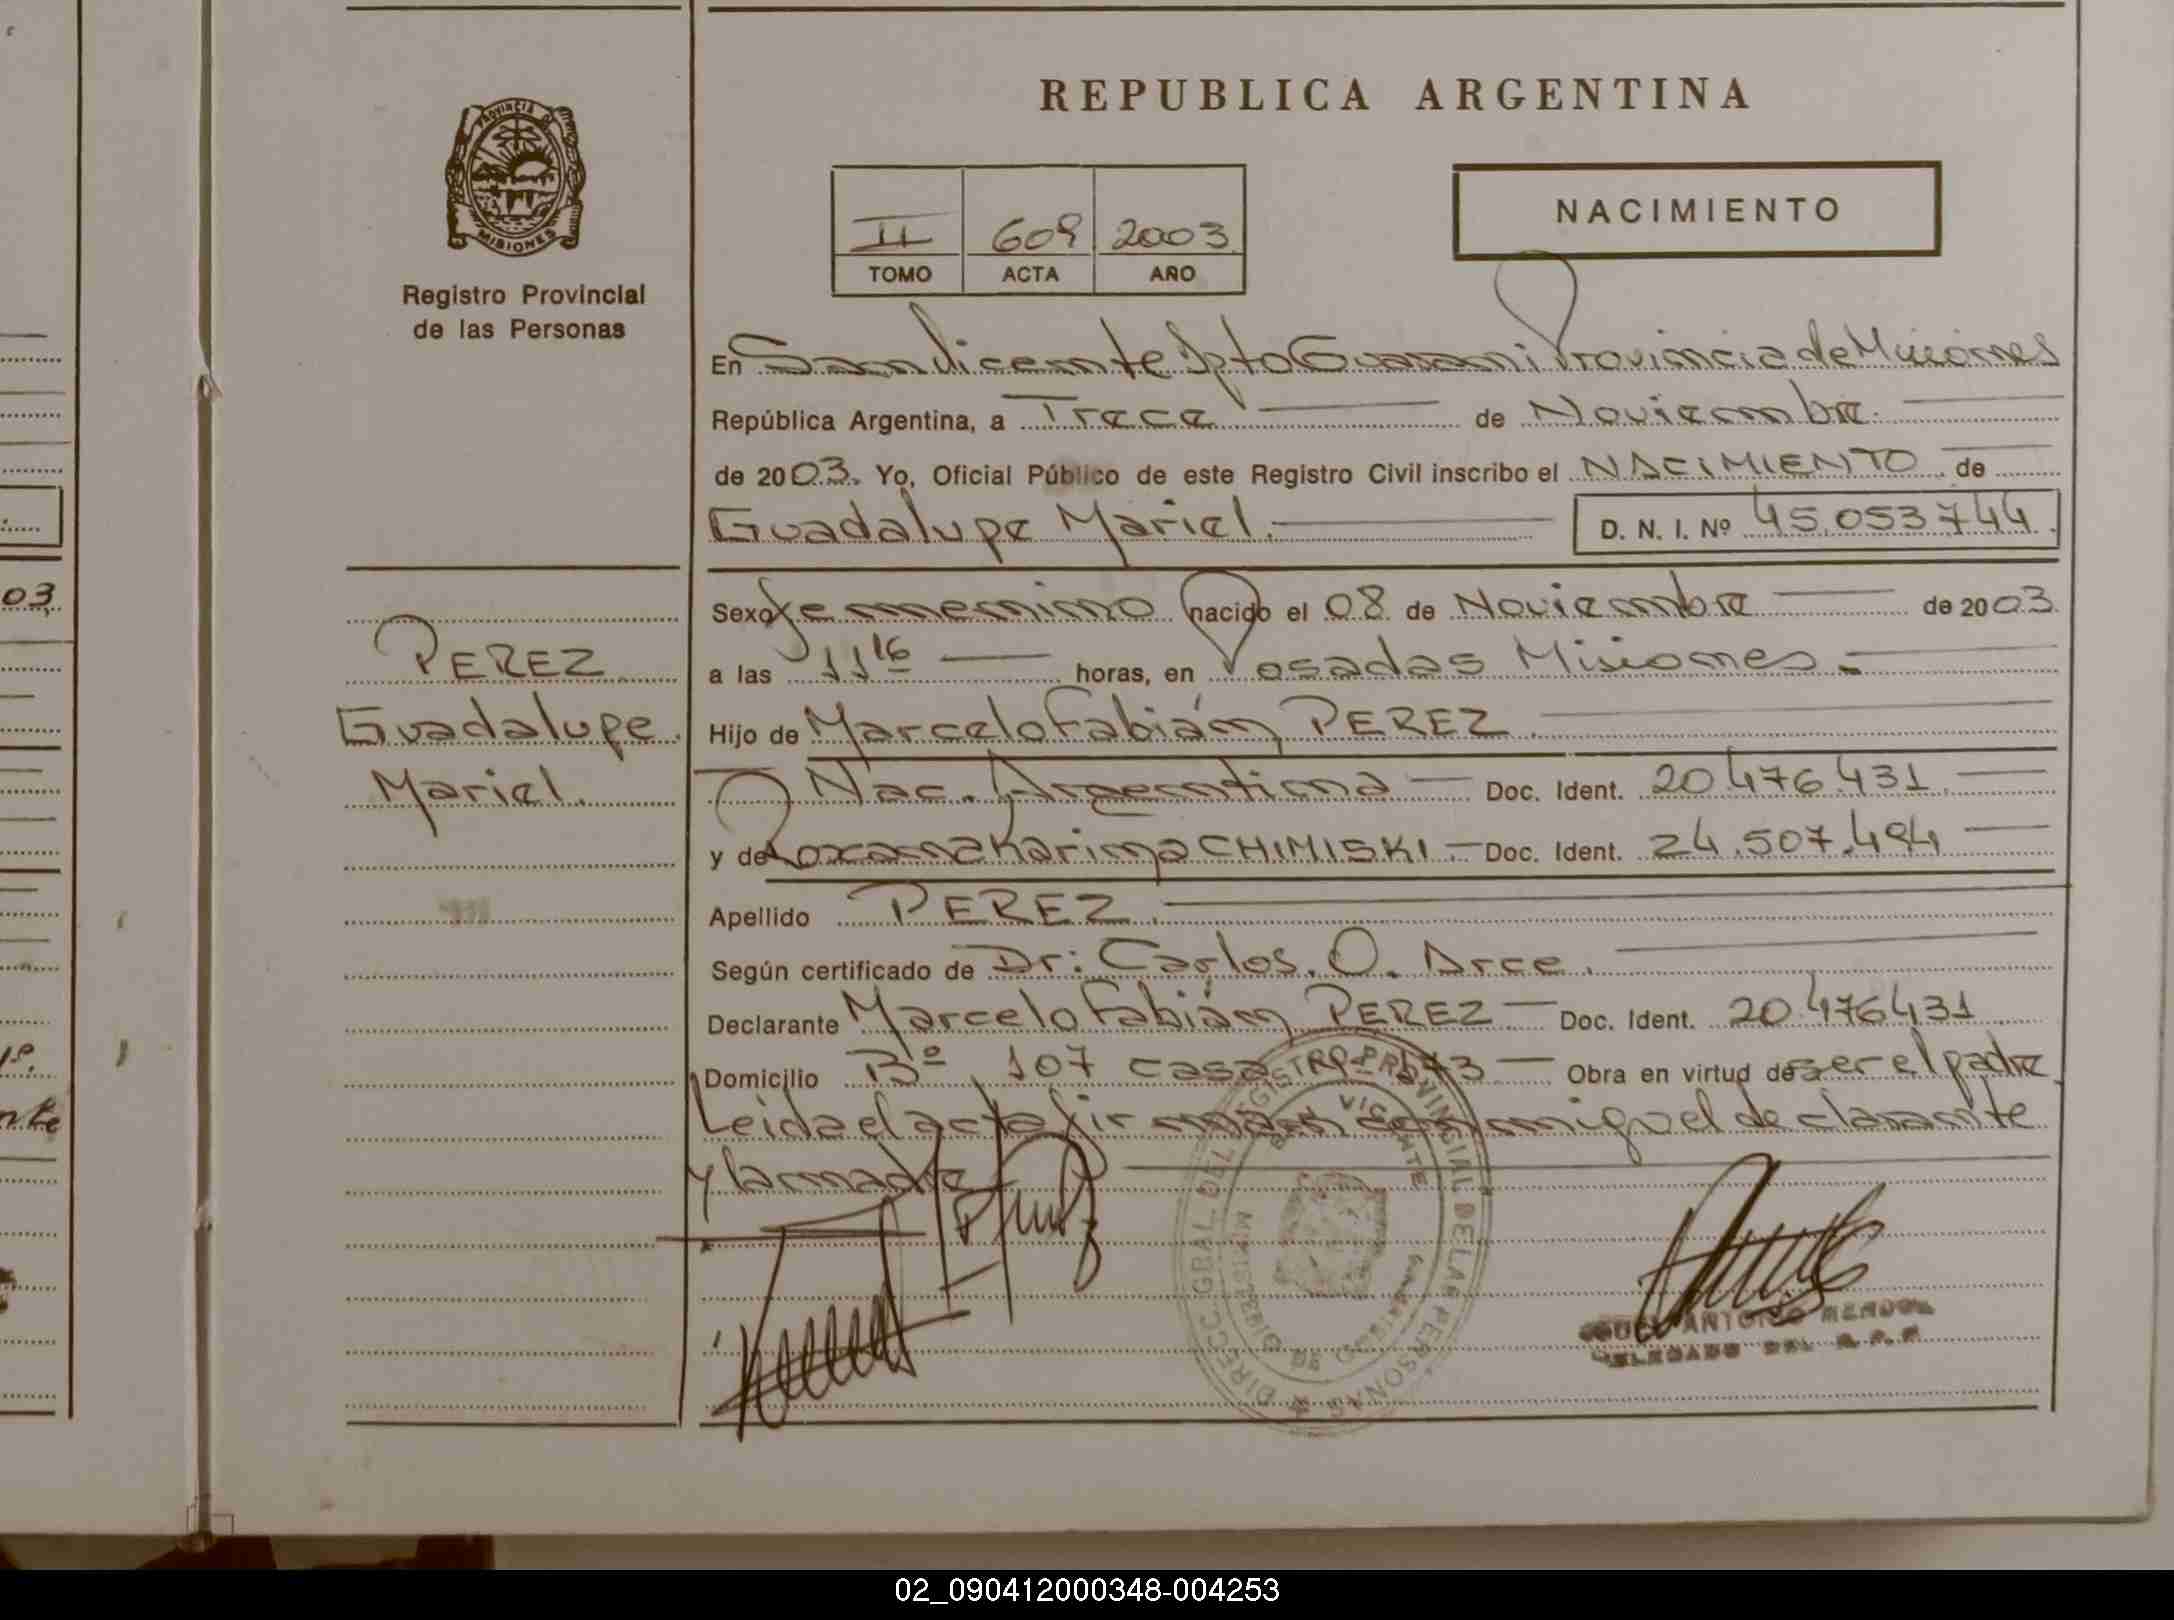 REPUBLICA ARGENTINA
PROVINCIA DE
MISIONES
Registro Provincial
de las Personas
II 609 2003
TOMO ACTA AÑO
NACIMIENTO
En San Vicente Dpto Guarani Provincia de Misiones
República Argentina, a Trece de Noviembre
de 2003. Yo, Oficial Público de este Registro Civil inscribo el NACIMIENTO de
Guadalupe Mariel. D. N. I. Nº 45.053744.
Sexo femenino nacido el 08 de Noviembre de 2003
a las 11 16 horas, en Posadas Misiones.
Hijo de Marcelo Fabián PEREZ.
Nac. Argentina Doc. Ident. 20.476.431
y de Roxana Karina CHIMISKI Doc. Ident. 24.507.494
Apellido PEREZ.
Según certificado de Dr: Carlos. O. Arce.
Declarante Marcelo Fabián PEREZ Doc. Ident. 20476431
Domicilio Bº 107 casa Nº 73 Obra en virtud de ser el padre
Leida el acta firman conmigo el declarante
y la madre
PEREZ
Guadalupe
Mariel.
DIRECC. GRAL. DEL REGISTRO PROVINCIAL DE LAS PERSONAS
VICENTE
ANTONIO
DELEGADO DEL R. P. P.
03
02_090412000348-004253